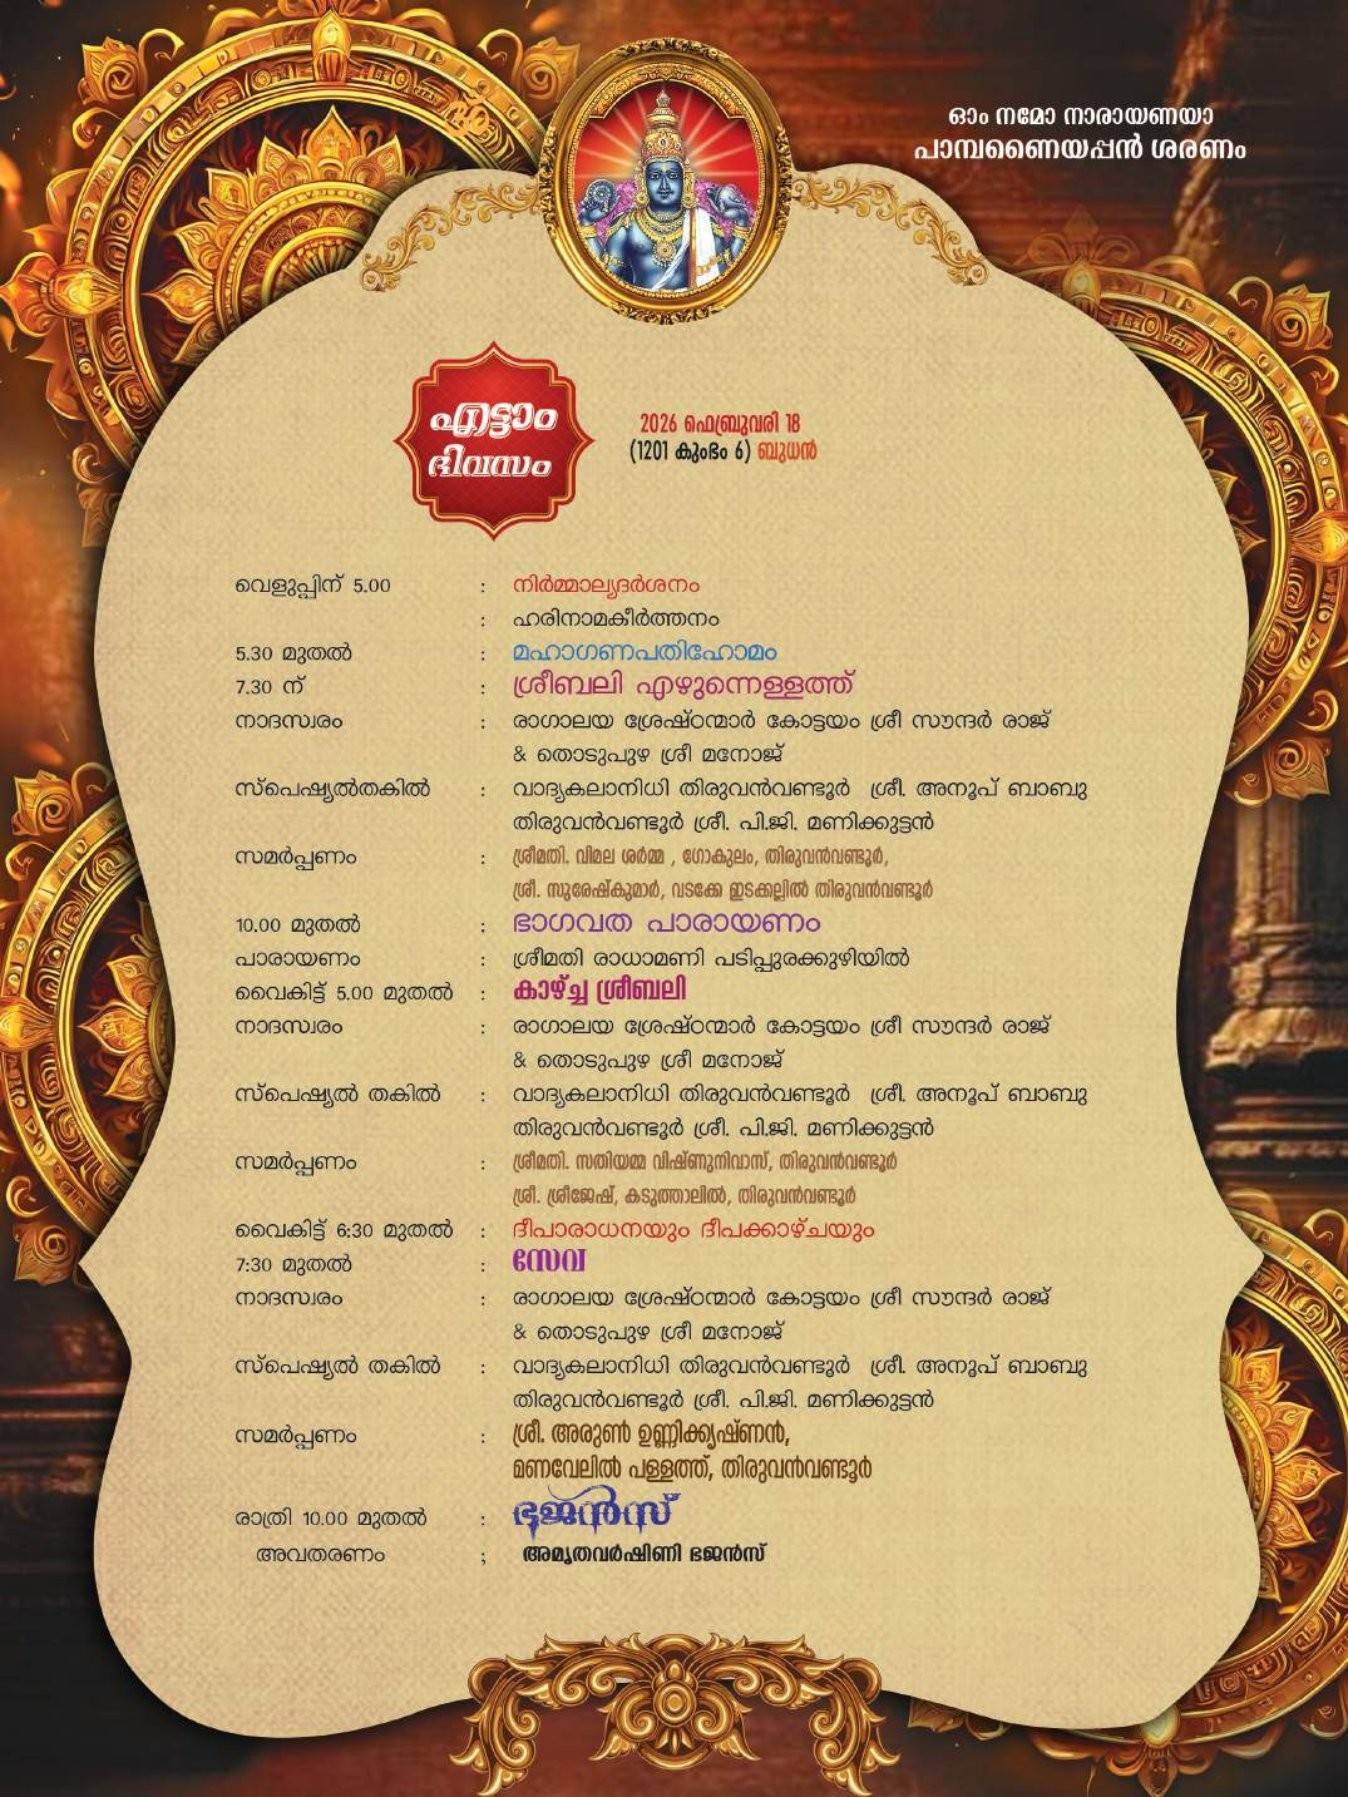 ഓം നമോ നാരായണയാ
പാമ്പണൈയപ്പൻ ശരണം
എട്ടാം
ദിവസം
2026 ഫെബ്രുവരി 18
(1201 കുംഭം 6) ബുധൻ
വെളുപ്പിന് 5.00 : നിർമ്മാല്യദർശനം
: ഹരിനാമകീർത്തനം
5.30 മുതൽ : മഹാഗണപതിഹോമം
7.30 ന് : ശ്രീബലി എഴുന്നെള്ളത്ത്
നാദസ്വരം : രാഗാലയ ശ്രേഷ്ഠന്മാർ കോട്ടയം ശ്രീ സൗന്ദർ രാജ്
& തൊടുപുഴ ശ്രീ മനോജ്
സ്പെഷ്യൽതകിൽ : വാദ്യകലാനിധി തിരുവൻവണ്ടൂർ ശ്രീ. അനൂപ് ബാബു
തിരുവൻവണ്ടൂർ ശ്രീ. പി.ജി. മണിക്കുട്ടൻ
സമർപ്പണം : ശ്രീമതി. വിമല ശർമ്മ , ഗോകുലം, തിരുവൻവണ്ടൂർ,
ശ്രീ. സുരേഷ്കുമാർ, വടക്കേ ഇടക്കല്ലിൽ തിരുവൻവണ്ടൂർ
10.00 മുതൽ : ഭാഗവത പാരായണം
പാരായണം : ശ്രീമതി രാധാമണി പടിപ്പുരക്കുഴിയിൽ
വൈകിട്ട് 5.00 മുതൽ : കാഴ്ച്ച ശ്രീബലി
നാദസ്വരം : രാഗാലയ ശ്രേഷ്ഠന്മാർ കോട്ടയം ശ്രീ സൗന്ദർ രാജ്
& തൊടുപുഴ ശ്രീ മനോജ്
സ്പെഷ്യൽ തകിൽ : വാദ്യകലാനിധി തിരുവൻവണ്ടൂർ ശ്രീ. അനൂപ് ബാബു
തിരുവൻവണ്ടൂർ ശ്രീ. പി.ജി. മണിക്കുട്ടൻ
സമർപ്പണം : ശ്രീമതി. സതിയമ്മ വിഷ്ണുനിവാസ്, തിരുവൻവണ്ടൂർ
ശ്രീ. ശ്രീജേഷ്, കടുത്താലിൽ, തിരുവൻവണ്ടൂർ
വൈകിട്ട് 6:30 മുതൽ : ദീപാരാധനയും ദീപക്കാഴ്ചയും
7:30 മുതൽ : സേവ
നാദസ്വരം : രാഗാലയ ശ്രേഷ്ഠന്മാർ കോട്ടയം ശ്രീ സൗന്ദർ രാജ്
& തൊടുപുഴ ശ്രീ മനോജ്
സ്പെഷ്യൽ തകിൽ : വാദ്യകലാനിധി തിരുവൻവണ്ടൂർ ശ്രീ. അനൂപ് ബാബു
തിരുവൻവണ്ടൂർ ശ്രീ. പി.ജി. മണിക്കുട്ടൻ
സമർപ്പണം : ശ്രീ. അരുൺ ഉണ്ണിക്കൃഷ്ണൻ,
മണവേലിൽ പള്ളത്ത്, തിരുവൻവണ്ടൂർ
രാത്രി 10.00 മുതൽ : ഭജൻസ്
അവതരണം ; അമൃതവർഷിണി ഭജൻസ്